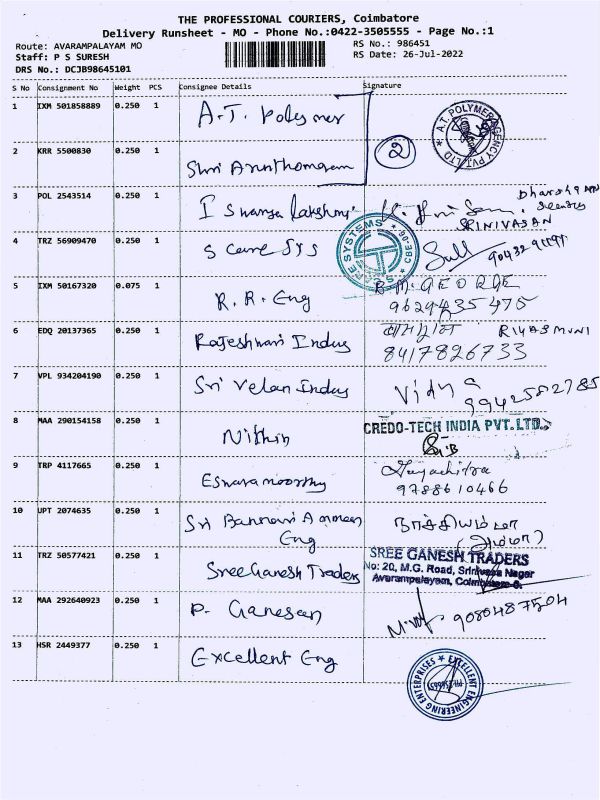 THE PROFESSIONAL COURIERS, Coimbatore
Delivery Runsheet - MO - Phone No.:0422-3505555 - Page No.:1
Route: AVARAMPALAYAM MO
RS No.: 986451
Staff: P S SURESH
RS Date: 26-Jul-2022
DRS No.: DCJB98645101
S No Consignment No Weight PCS Consignee Details Signature
1 IXM 501858889 0.250 1 A.T. Polymer
A.T. POLYMER AGENCY PVT. LTD
2 KRR 5500830 0.250 1 Shri 2
3 POL 2543514 0.250 1 I Swarya Lakshmi
SRINIVASAN
4 TRZ 56909470 0.250 1 S Care SYS
CARE SYSTEMS CBE-06
5 IXM 50167320 0.075 1 R.R. Eng R.M. GEORGE
9629435475
6 EDQ 20137365 0.250 1 Rajeshwari Indus RIYASMUNI
8417826733
7 VPL 934204190 0.250 1 Sri Velan Indus Vidya
9942582785
8 MAA 290154158 0.250 1 Nithin CREDO-TECH INDIA PVT. LTD.,
9 TRP 4117665 0.250 1 Eswaramoorthy Jayachitra
9788610466
10 UPT 2074635 0.250 1 Sri Bannari Amman
Eng
நாச்சியம்மா
(அம்மா)
11 TRZ 50577421 0.250 1 Sree Ganesh Traders SREE GANESH TRADERS
No: 20, M.G. Road, Srinivasa Nagar
Avarampalayam, Coimbatore-6.
12 MAA 292640923 0.250 1 P. Ganesan 9080487504
13 HSR 2449377 0.250 1 Excellent Eng
EXCELLENT ENGINEERING ENTERPRISES